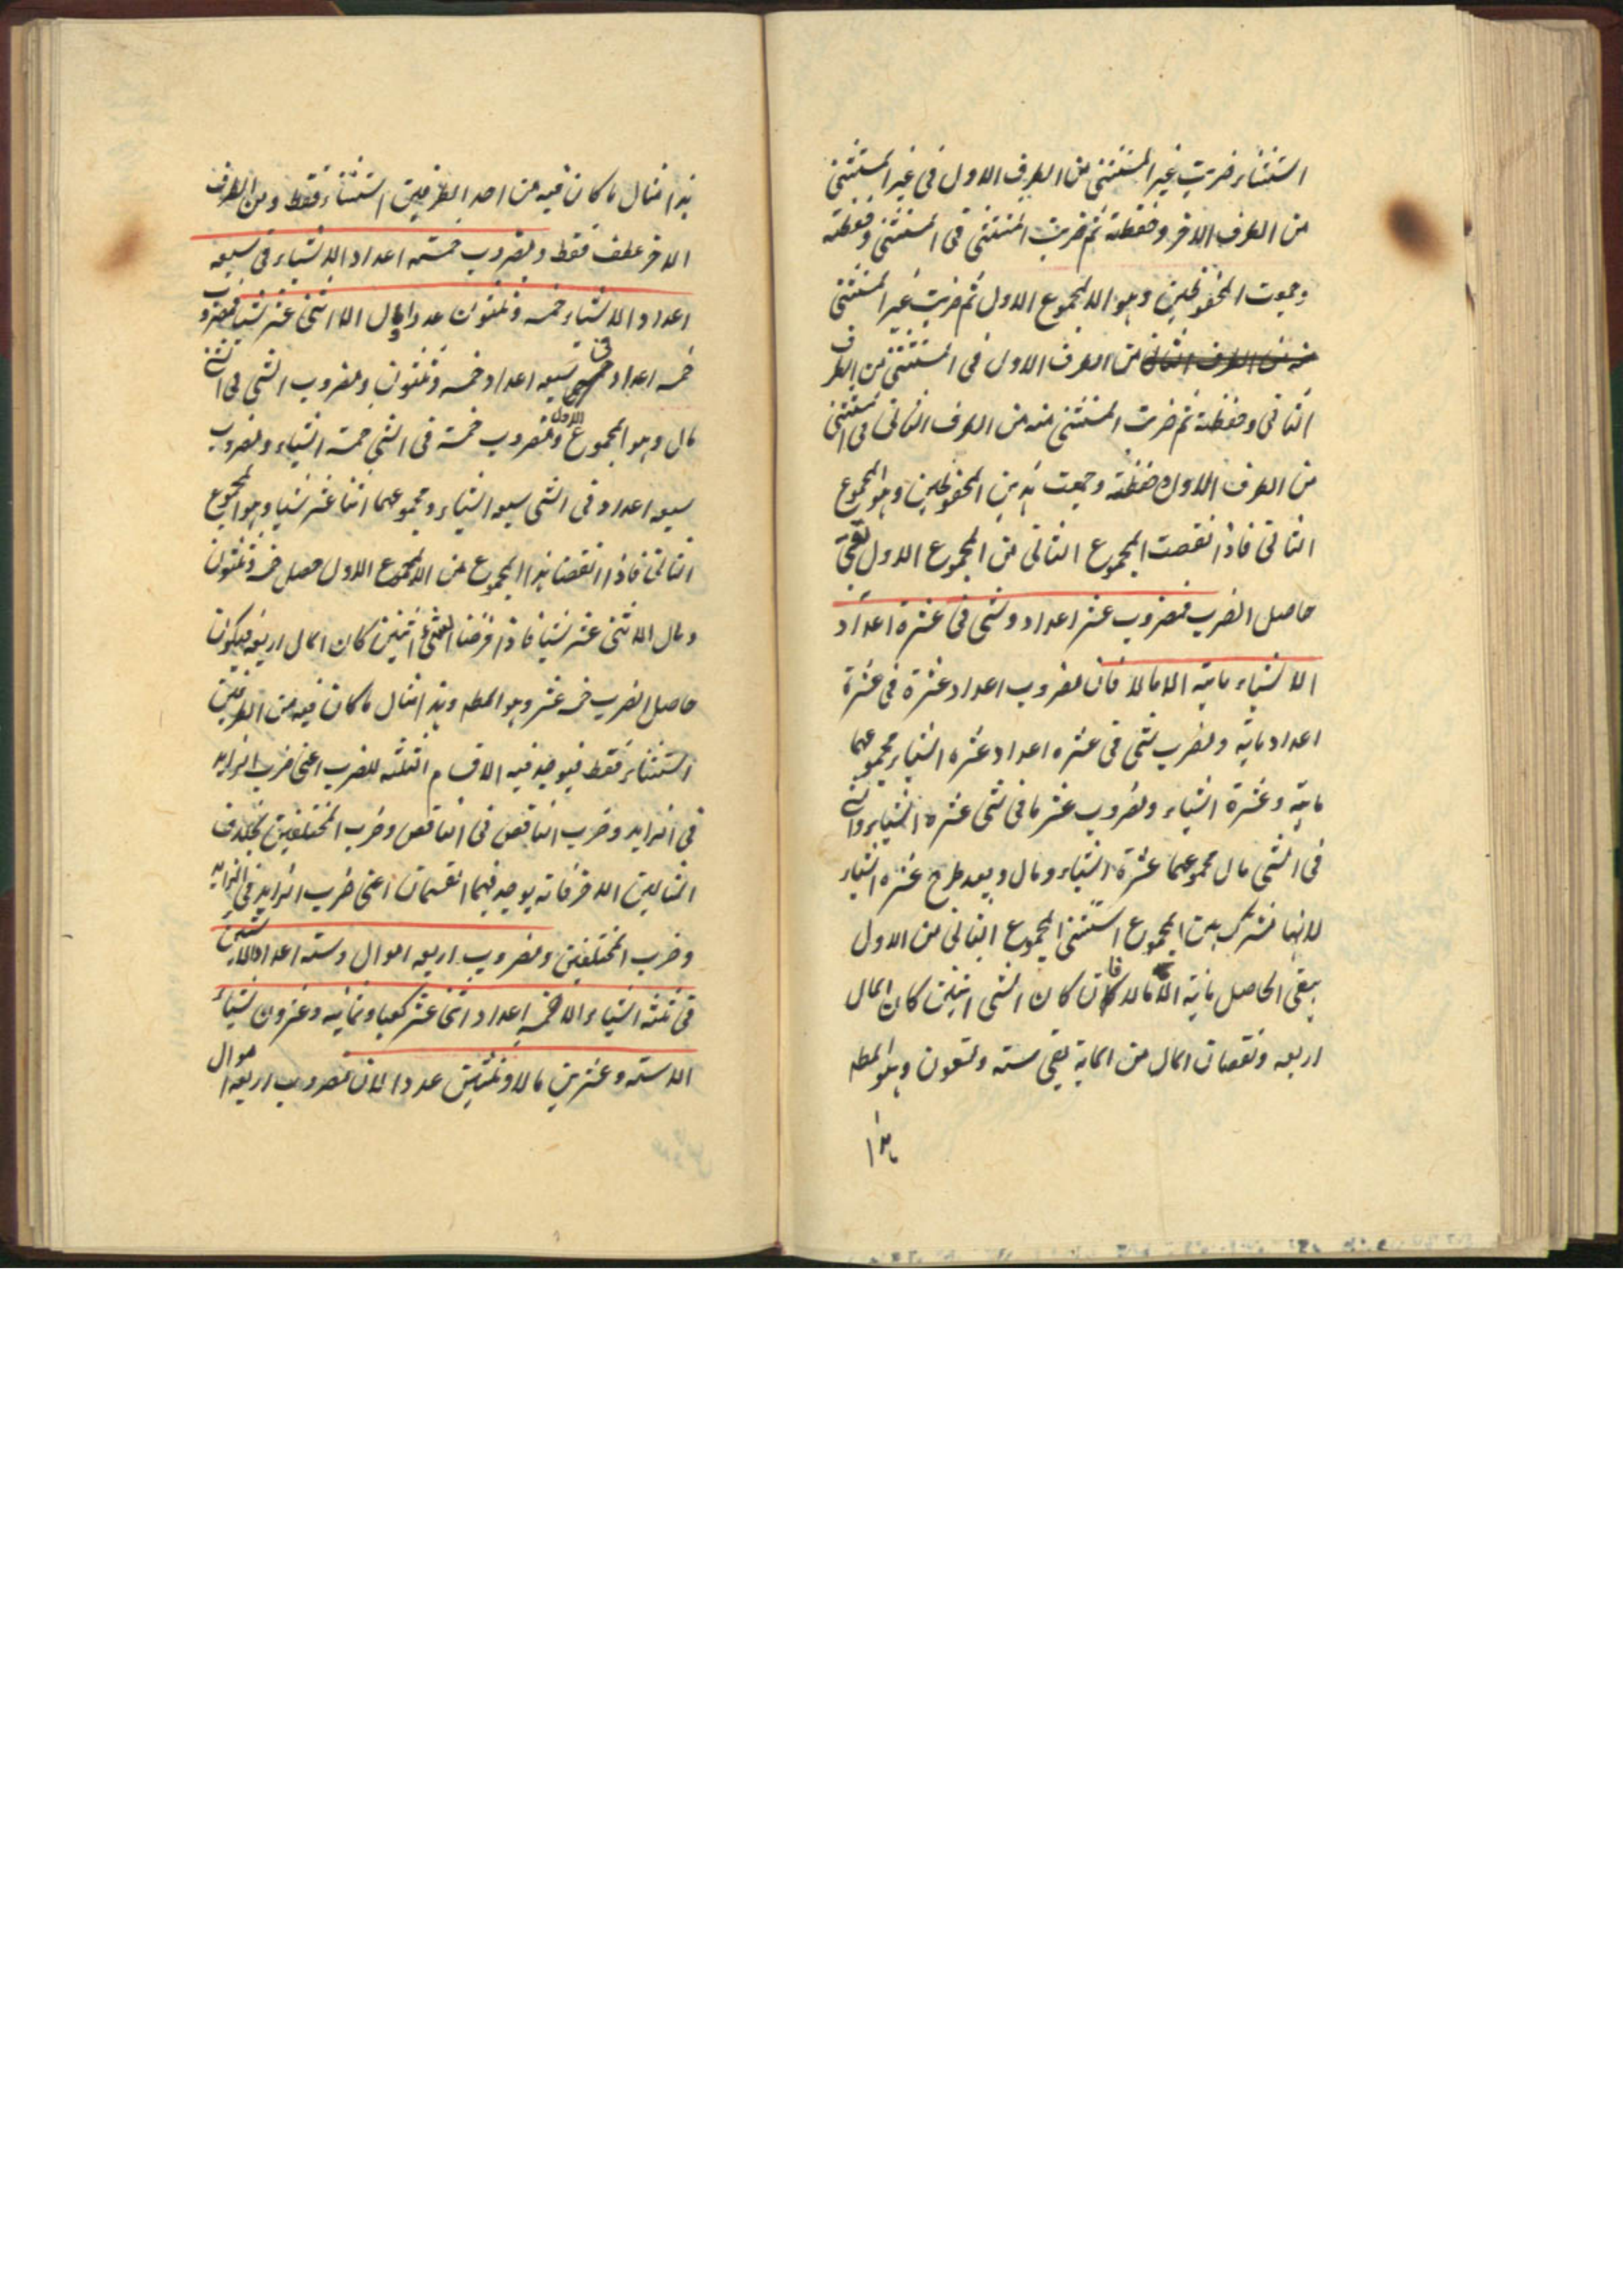 استثناء ضربت غير المستثنى من الطرف الاول فى غير المستثنى
من الطرف الاخر وحفظته ثم ضربت المستثنى فى المستثنى وحفظته
وجمعت المحفوظين وهو المجموع الاول ثم ضربت غير المستثنى
من الطرف الاول فى المستثنى من الطرف
الثانى وحفظته ثم ضربت المستثنى منه من الطرف الثانى فى المستثنى
من الطرف الاول وحفظته وجمعت هذين المحفوظين وهو المجموع
الثانى فاذا نقصت المجموع الثانى من المجموع الاول بقى
حاصل الضرب فمضروب عشر اعداد وشى فى عشرة اعداد
الا شياء مايه الا مالا فان مضروب اعداد عشرة فى عشرة
اعداد مايه ومضرب شى فى عشره اعداد عشره اشياء مجموعهما
مايه وعشرة اشياء ومضروب عشر ما فى شى عشرة اشياء والشى
فى الشى مال مجموعهما عشرة اشياء ومال وبعد طرح عشره اشياء
لانها مشترك بين المجموع استثنى المجموع الثانى من الاول
يبقى الحاصل مايه الا مالا فان كان الشى اثنين كان المال
اربعه ونقصان المال من المايه بقى سته وتسعون وهو المط
هذا
هذا مثال ما كان فيه من احد الطرفين استثناء فقط ومن الطرف
الاخر عطف فقط ومضروب خمسه اعداد الا شياء فى سبعه
اعداد الا شياء خمسه وثلثون عددا ومال الا اثنى عشر شيا فمضروب
خمسه اعداد فى سبعه اعداد خمسه وثلثون ومضروب الشى فى الشى
مال وهو المجموع الاول ومضروب خمسة فى الشى خمسة اشياء ومضروب
سبعه اعداد فى الشى سبعه اشياء ومجموعهما اثنا عشر شيا وهو المجموع
الثانى فاذا انقصنا هذا المجموع من المجموع الاول حصل خمسه وثلثون
ومال الا اثنى عشر شيا فاذا فرضنا الشى اثنين كان المال اربعه فيكون
حاصل الضرب خمسه عشر وهو المط وهذا مثال ما كان فيه من الطرفين
استثناء فقط فيوجد فيه الاقسام الثلثه للضرب اعنى ضرب الزايد
فى الزايد وضرب الناقص فى الناقص وضرب المختلفين بخلاف
المثالين الاخر فانه يوجد فيهما القسمان اعنى ضرب الزايد فى الزايد
وضرب المختلفين ومضروب اربعه اموال وسته اعداد الا شيئين
فى ثلثه اشياء الا خمسه اعداد اثنى عشر كعبا وثمانيه وعشرون شيئا
الا سته وعشرين مالا وثلثين عددا لان مضروب اربعه اموال